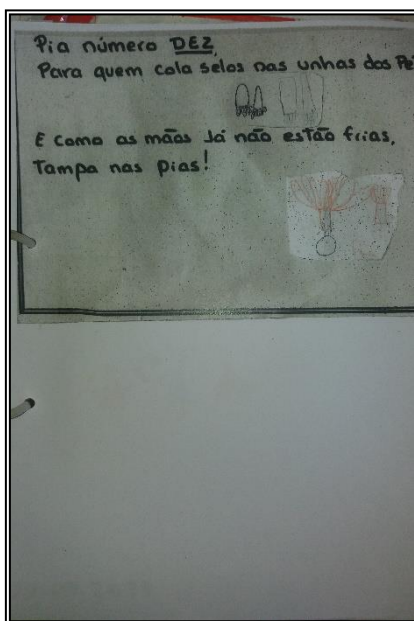 Pia número DEZ,
Para quem cola selos nas unhas dos Pé
E como as mãos Já não estão frias,
Tampa nas Pias!